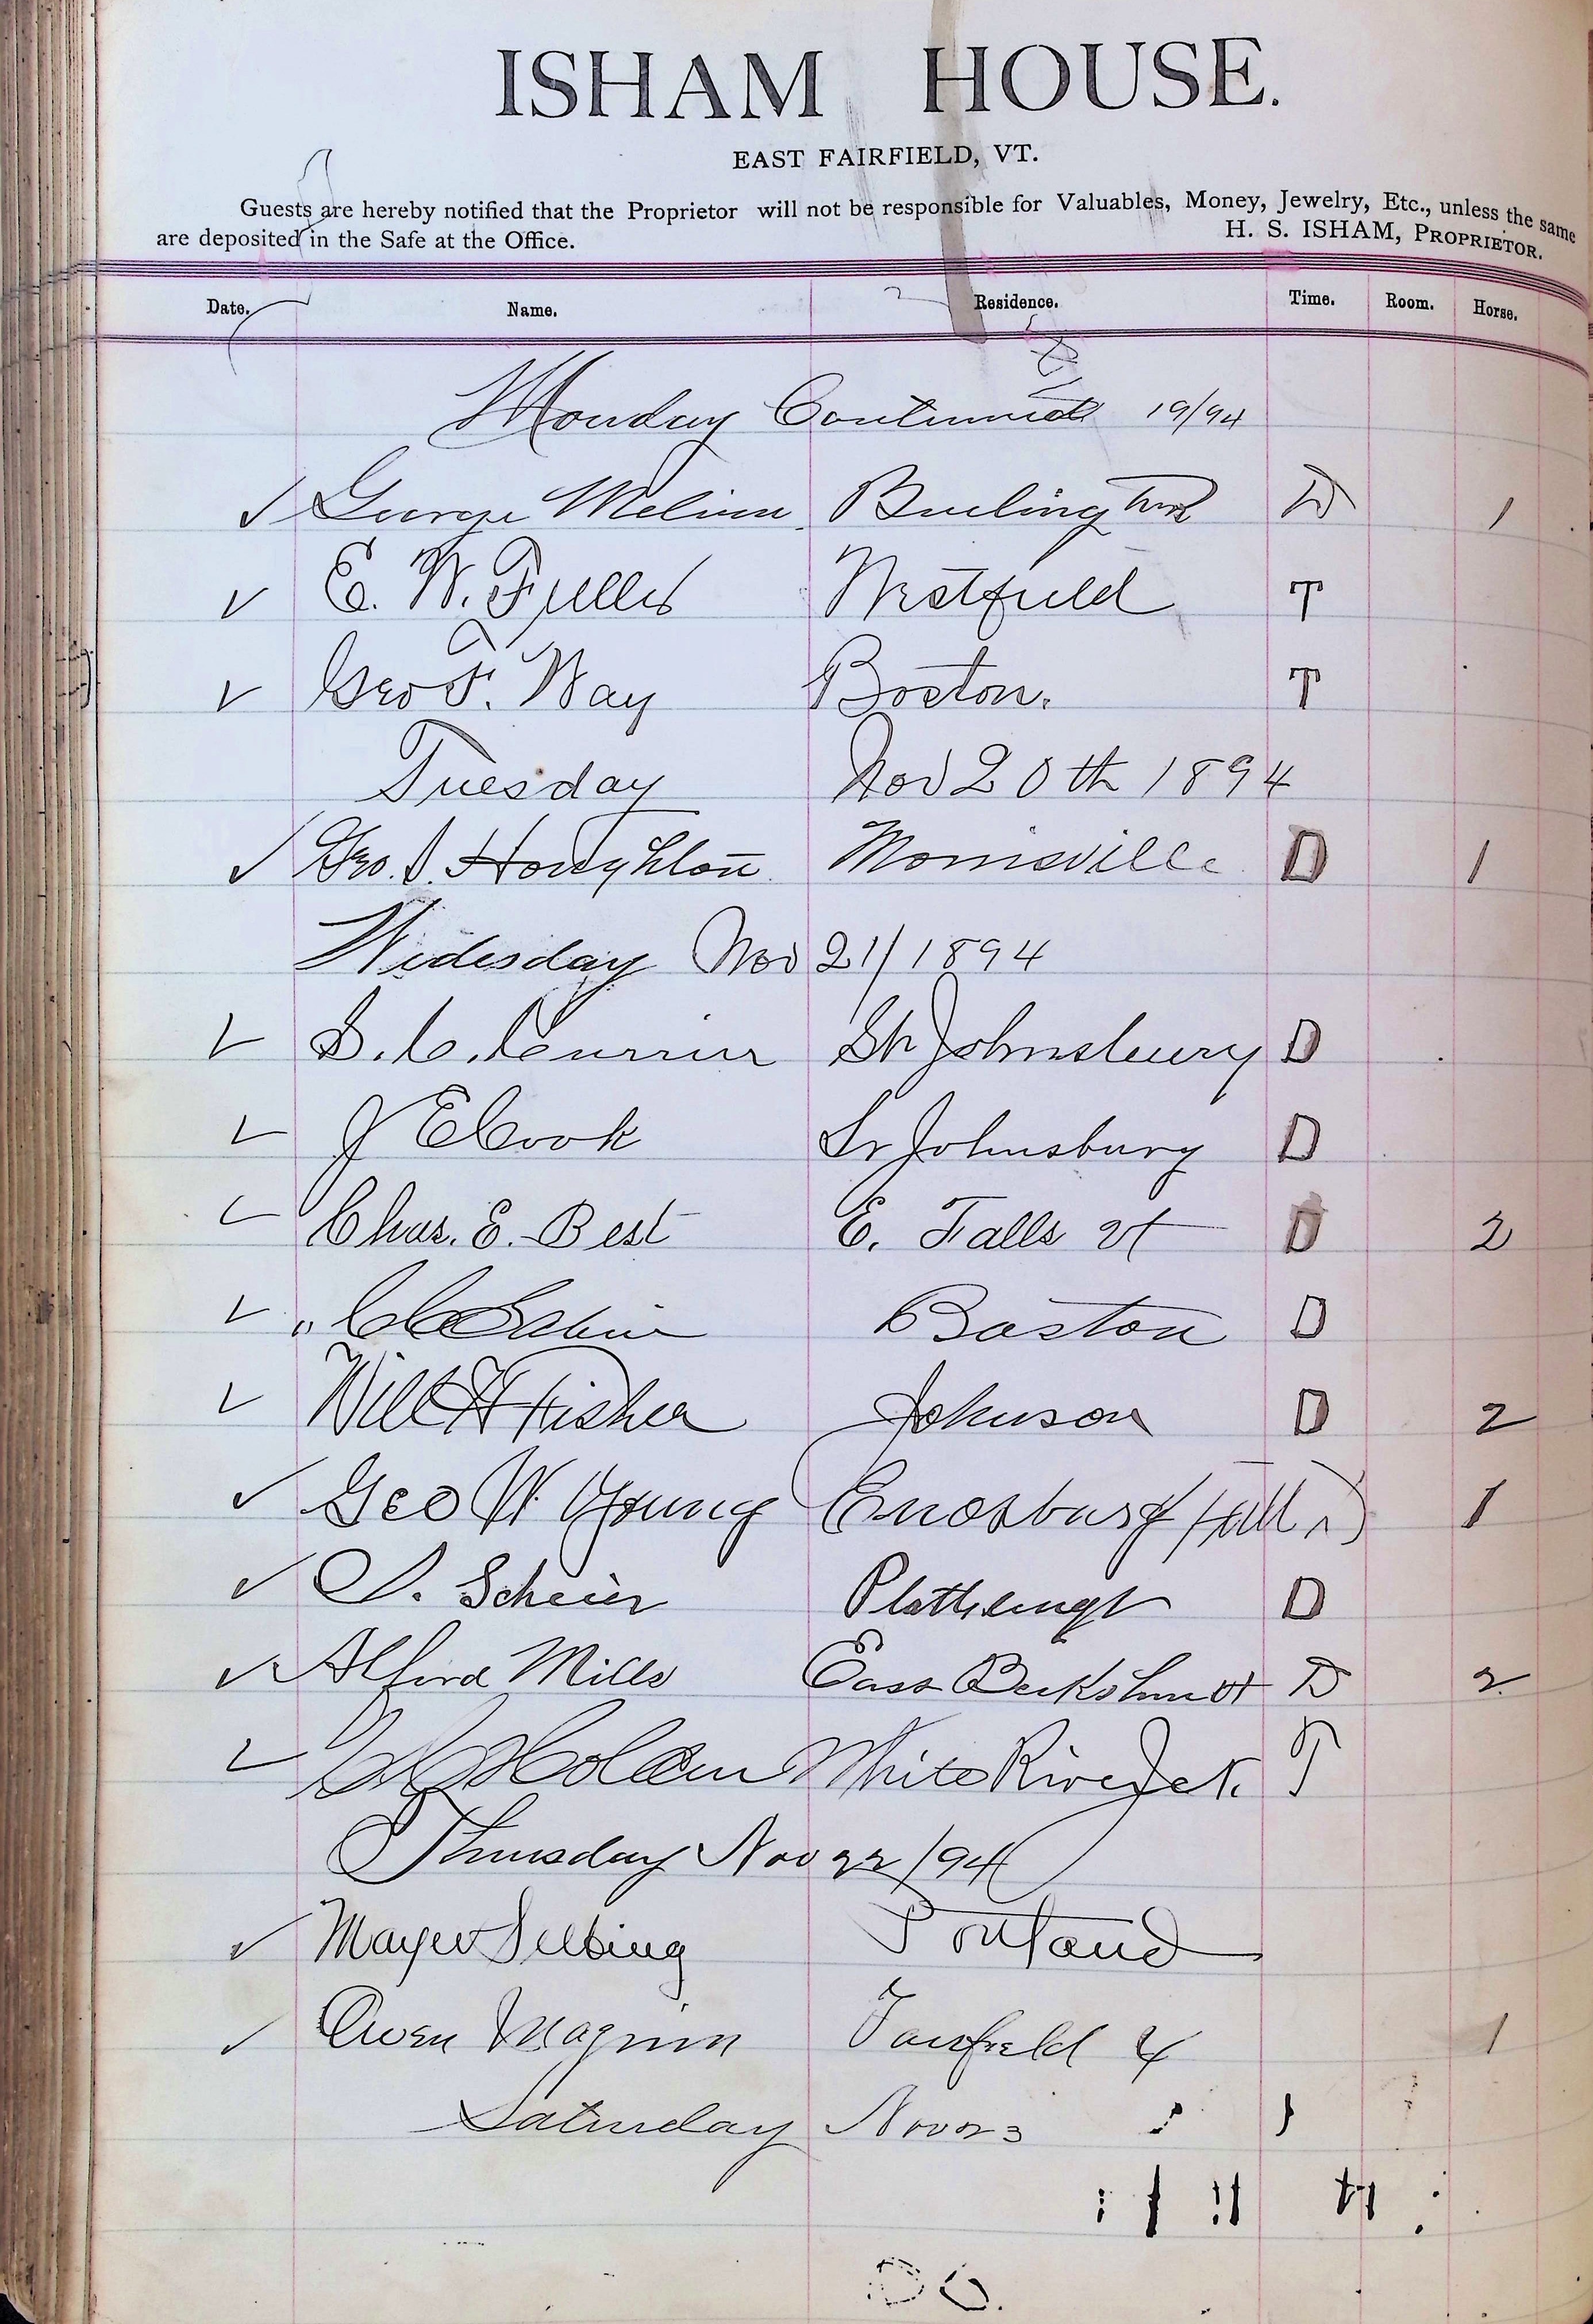 ISHAM HOUSE.
EAST FAIRFIELD, VT.
Guests are hereby notified that the Proprietor will not be responsible for Valuables, Money, Jewelry, Etc., unless the same
are deposited in the Safe at the Office. H. S. ISHAM, PROPRIETOR.
Date. Name. Residence. Time. Room. Horse.
Monday Continued 19/94
George Burlington D 1
E. W. Fuller Westfield T
Geo F. Way Boston. T
Tuesday Nov 20th 1894
Geo. S. Houghton Morrisville D 1
Wedesday Nov 21/1894
S. C. Currier St Johnsbury D
J E Cook St Johnsbury D
Chas. E. Best E. Falls Vt D 2
" Boston D
Will H Fisher Johnson D 2
Geo W. Young Enosburgh Falls D 1
S. Scheier Plattsburgh D
Alford Mills East Berkshire Vt D 2
Holden White River Jct. T
Thursday Nov 22/94
Mayer Portland
Owen Maginn Fairfield 1
Saturday Nov 23